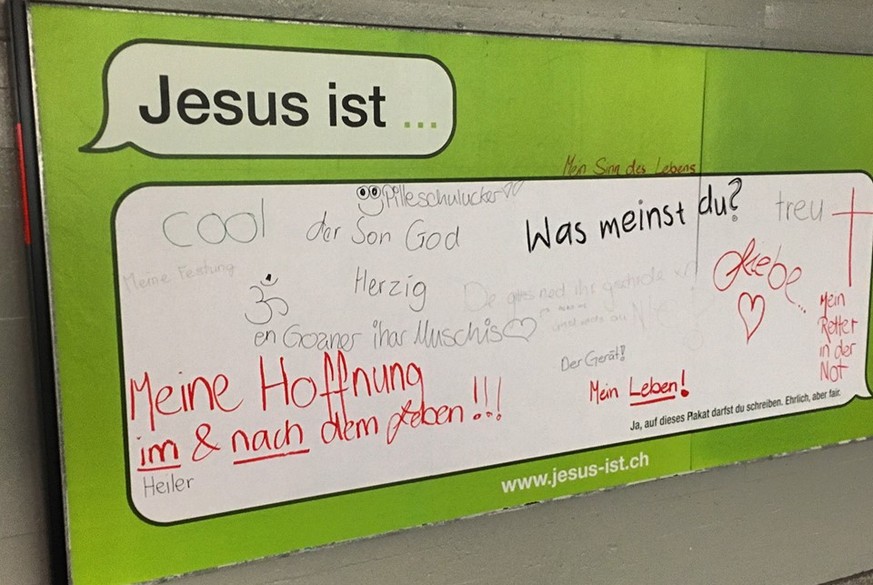 Jesus ist ...
Mein Sinn des Lebens
Pilleschulucker
cool
der Son God
Was meinst du?
treu
Meine Festung
Herzig
Liebe...
en Goaner ihar Muschis
Mein
Retter
in der
Not
Der Gerät!
Mein Leben!
Meine Hoffnung
im & nach dem Leben!!!
Heiler
Ja, auf dieses Plakat darfst du schreiben. Ehrlich, aber fair.
www.jesus-ist.ch